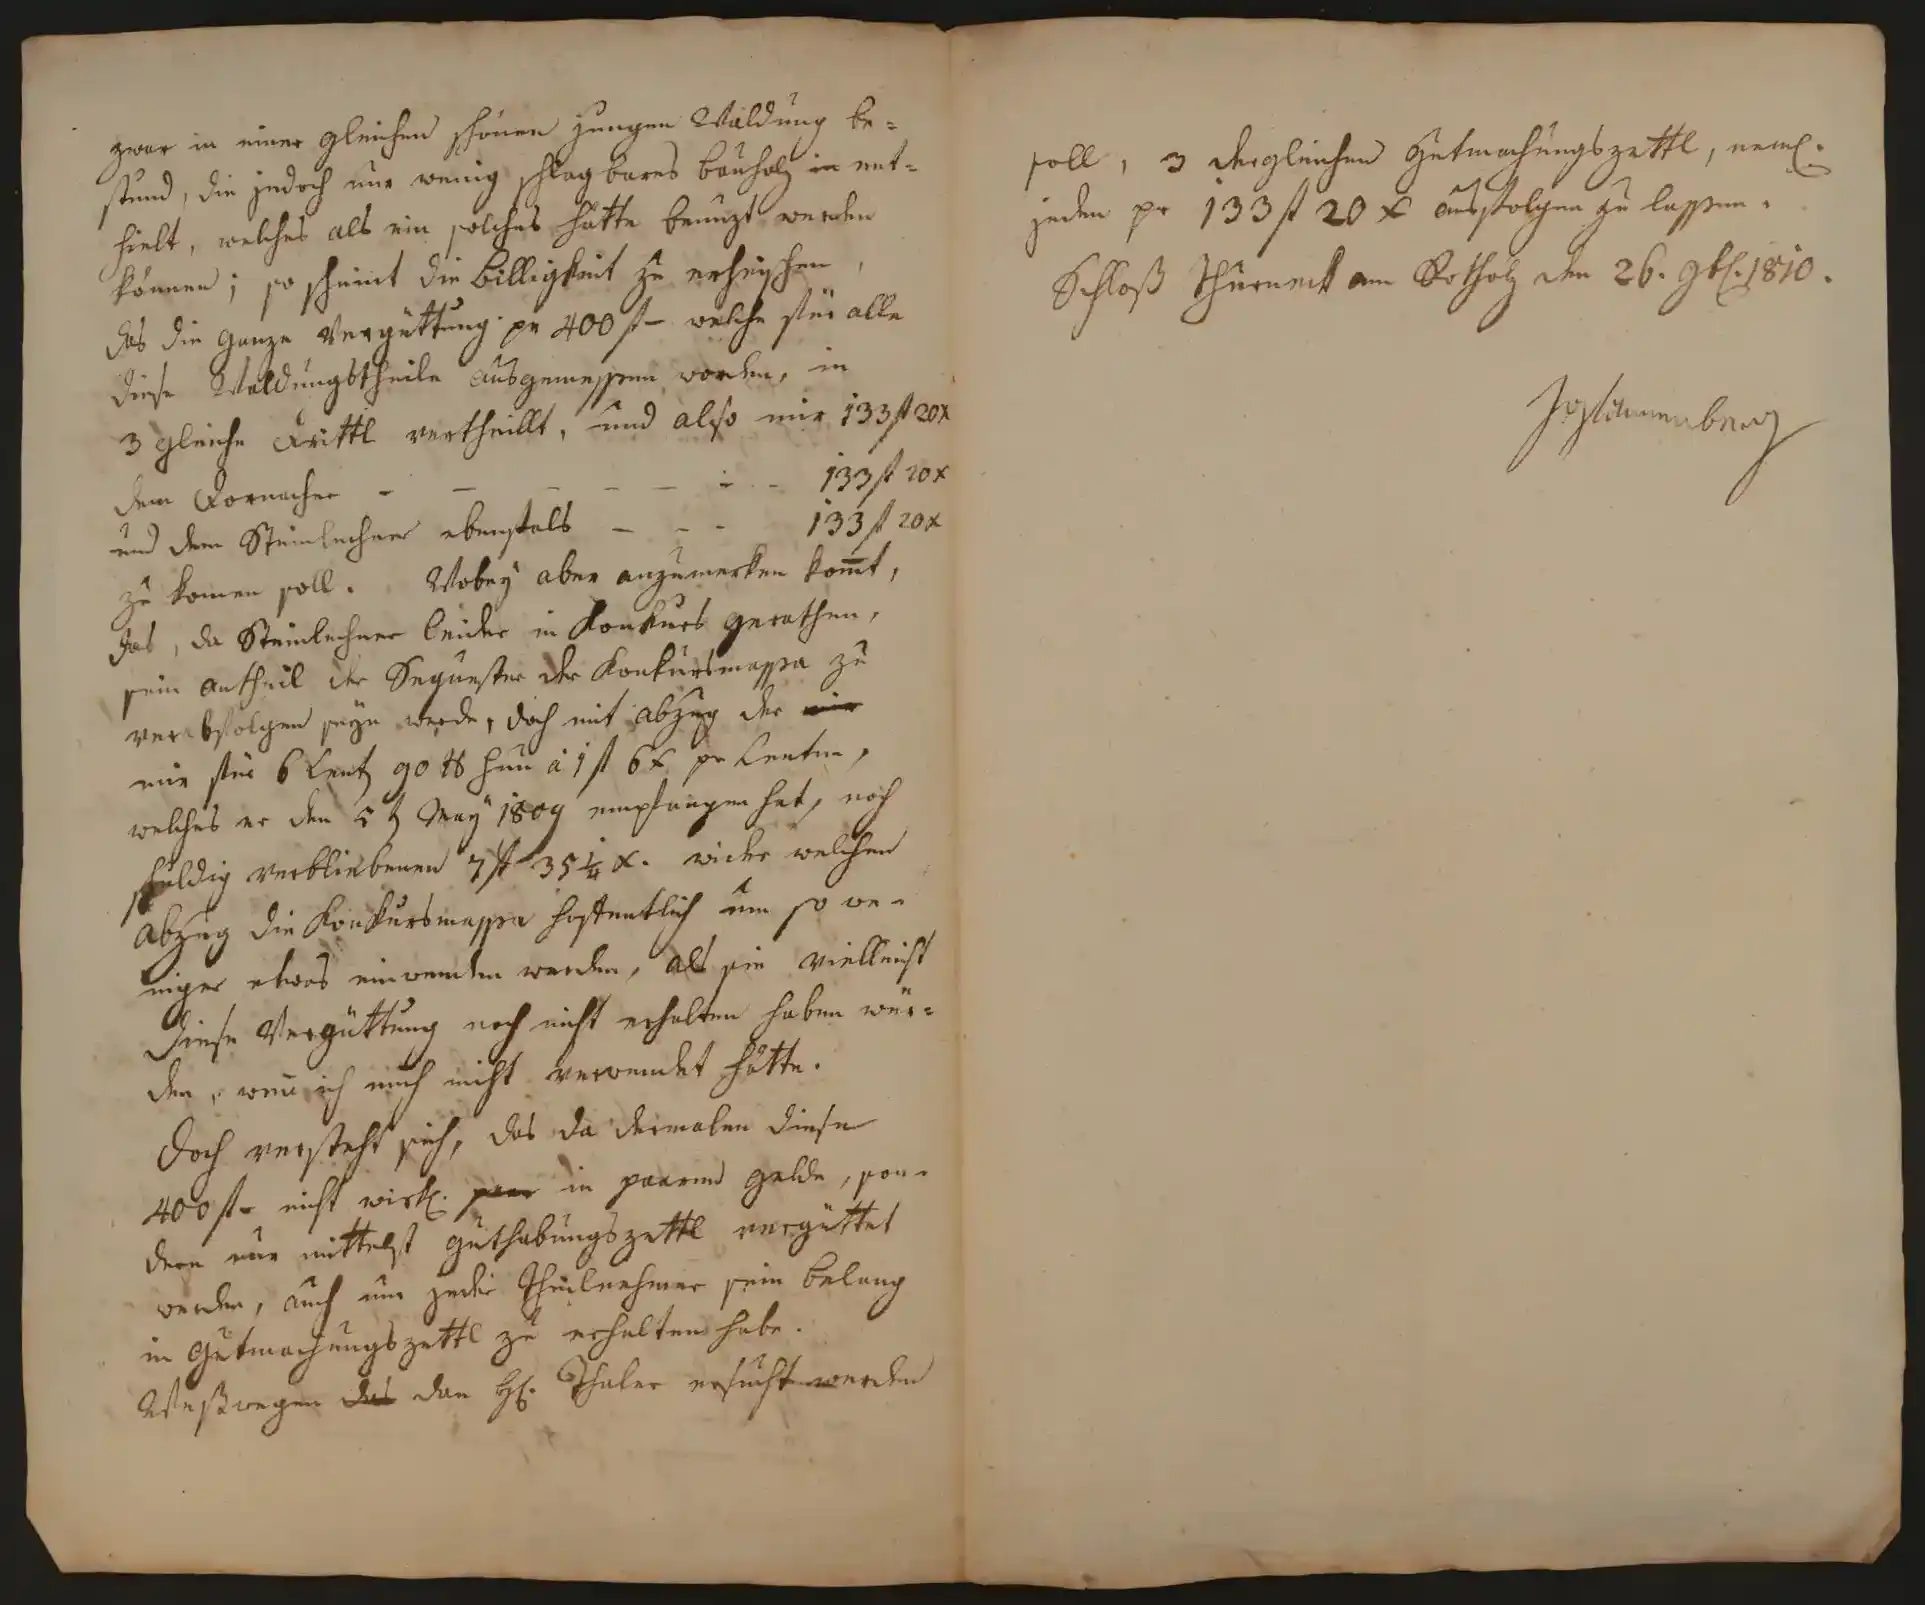 zwar in einer gleichen schönen jungen Waldung be=
stund, die jedoch nur wenig schlagbares bauholz in ent=
hielt, welches als ein solches hätte benuzt werden
können; so scheint die Billigkeit zu erheischen,
das die ganze Vergüttung pr 400 f – welche für alle
diese Waldungstheile ausgemessen worden, in
3 gleiche Drittl vertheillt, und also mir 133 f 20 x
dem Dornacher – – – – – – – 133 f 20 x
und dem Steinlechner ebenfals – – – 133 f 20 x
zu komen soll. Wobey aber anzumerken komt,
das, da Steinlechner leider in Konkurs gerathen,
sein antheil der Sequester der Konkursmassa zu
verabfolgen seyn werde, doch mit abzug der mir
mir für 6 Centz 90 ℔ heu à 1 f 6 x pr Centn,
welches er den 5t May 1809 empfangen hat, noch
schuldig verbliebenen 7 f 35 1/4 x. wider welchen
abzug die Konkursmassa hoffentlich um so we=
niger etwas einwenden werden, als sie vielleicht
diese Vergüttung noch nicht erhalten haben wür=
den, wen ich mich nicht verwendet hätte.
Doch versteht sich, das da dermalen diese
400 f – nicht wirkl. paar in paarem gelde, son=
dern nur mittelst guthabungszettl vergüttet
werden, auch nur jeder Theilnehmer sein belang
in Gutmachungszettl zu erhalten habe.
Weßwegen das dan H. Thaler ersucht werden
soll, 3 dergleichen Gutmachungszettl, neml.
jeden pr 133 f 20 x ausfolgen zu lassen.
Schloß Thurneck am Rotholz den 26. 9bl. 1810.